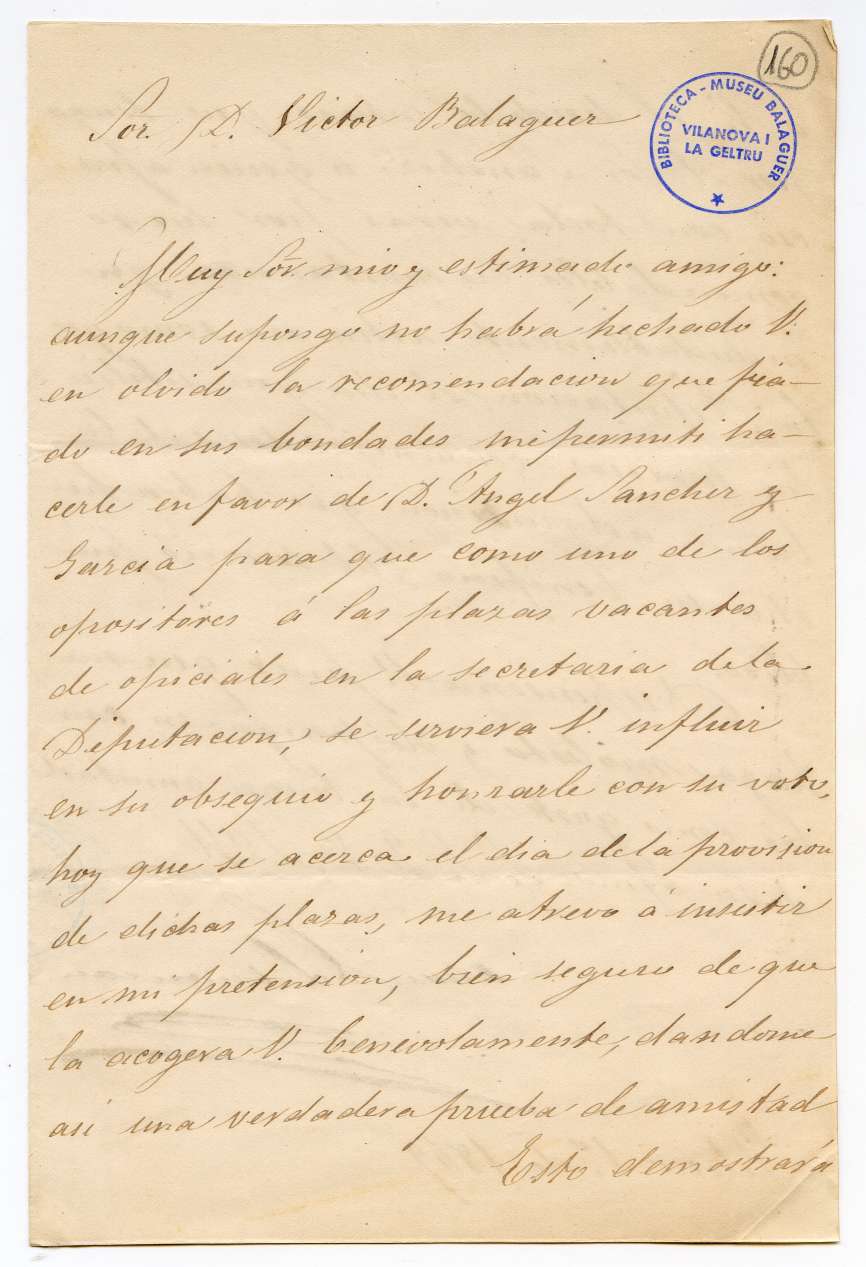 160
BIBLIOTECA - MUSEU BALAGUER
VILANOVA I
LA GELTRU
Sor. D. Victor Balaguer
Muy Sor. mio y estimado amigo:
aunque supongo no habrá hechado V.
en olvido la recomendacion que fia-
do en sus bondades me permiti ha-
cerle en favor de D. Angel Sanchez y
Garcia para que como uno de los
opositores á las plazas vacantes
de oficiales en la secretaria de la
Diputacion, se serviera V. influir
en su obsequio y honrarle con su voto,
hoy que se acerca el dia de la provision
de dichas plazas, me atrevo á insistir
en mi pretension, bien seguro de que
la acogera V. benevolamente, dandome
asi una verdadera prueba de amistad
Esto demostrará